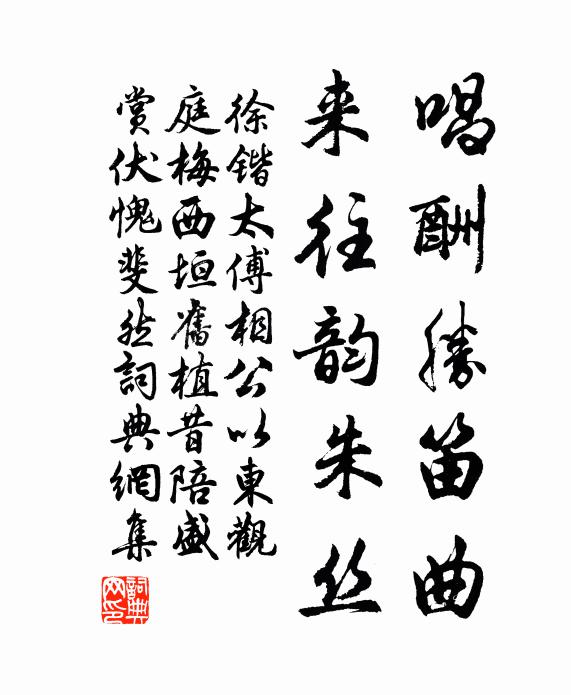 唱酬勝笛曲
来往韵朱丝
徐锴太傅相公以東觀
庭梅西垣舊植昔陪盛
賞伏愧斐然詞典網集
詞典网印